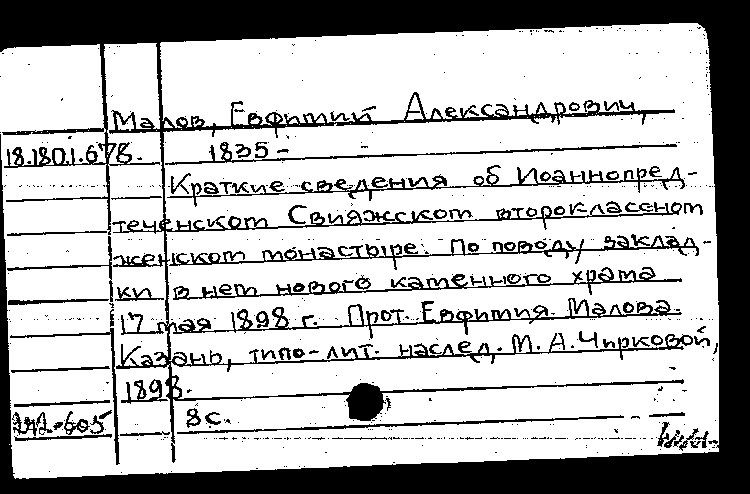 Малов, Евфимий Александрович,
18.180.1.678. 1835 -
Краткие сведения об Иоаннопред-
теченском Свияжском второклассном
женском монастыре. По поводу заклад-
ки в нем нового каменного храма
17 мая 1898 г. Прот. Евфимия Малова.
Казань, типо-лит. наслед. М. А. Чирковой,
1898.
8с.